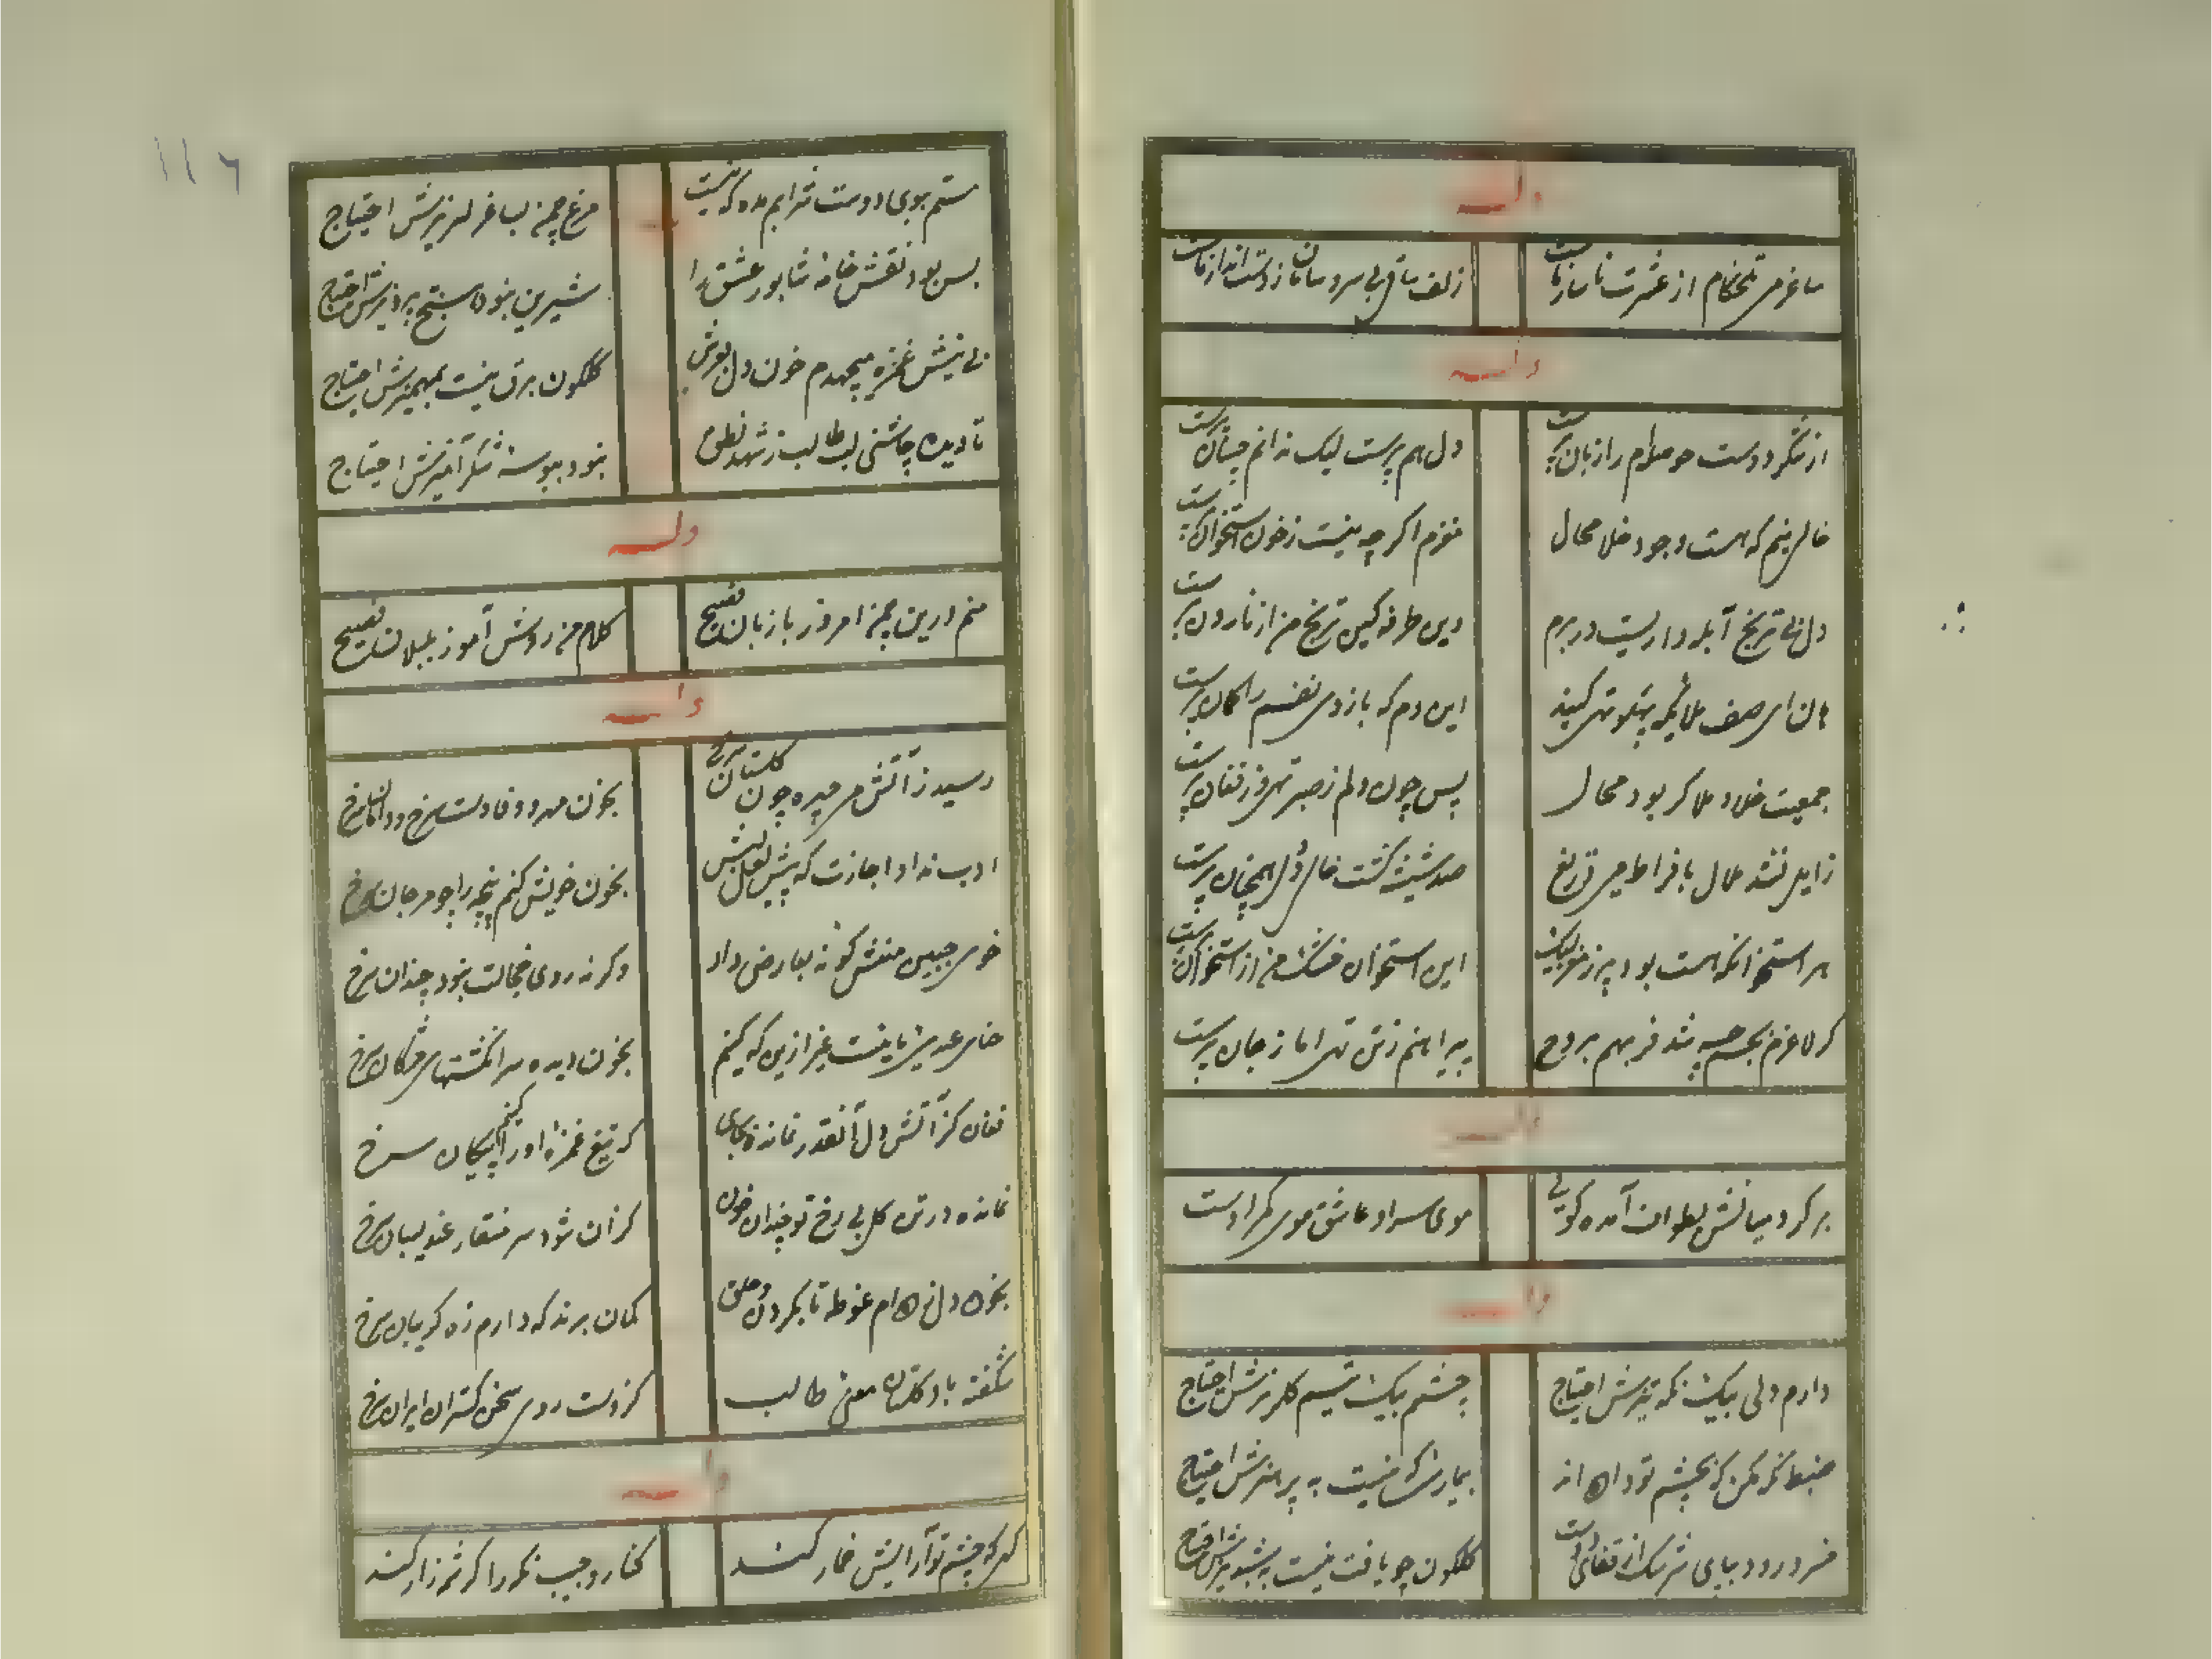 وله
ساغر می تلخکام از عشرت ناساز ماست
زلف ساقی بی سر و سامان ز دست انداز ماست
وله
از شکر دوست حوصله‌ام را زبان پرست
دل هم پرست لیک ندانم چسان پرست
خالی نیم که هست وجود خلا محال
مغزم اگرچه نیست ز خون استخوان پرست
دل بی ترنج آبله داریست در برم
وین طرفه کین ترنج من از ناردان پرست
هان ای صف ملائکه پهلو تهی کنید
این دم که بازوی نفسم را کمان پرست
جمعیت خلا و ملا گر بود محال
پس چون دلم ز صبر تهی وز فغان پرست
زایل نشد ملال بافراط می دریغ
صد شیشه گشت خالی و دل همچنان پرست
هر استخوانکه هست بود پر ز مغز لیک
این استخوان خشک من از استخوان پرست
گر لاغرم بجسم چه شد فربهم بروح
پیراهنم ز تن تهی اما ز جان پرست
وله
بر گرد میانش بطواف آمده گویی
موی سر او عاشق موی کمر اوست
وله
دارم دلی بیک نگه تیزش احتیاج
چشمم بیک تبسم گلریزش احتیاج
ضبط نگر مکن که بچشم تو داده‌اند
بیماریی که نیست به پرهیزش احتیاج
فرد رود بپای سرشک از قفای دوست
گلگون چو یافت نیست به شبدیزش احتیاج
۱۱۶
مستم ببوی دوست شرابم مده که نیست
مرغ چمن بساغر لبریزش احتیاج
بس بود نقش خامه شاپور عشق را
شیرین نبود گنج پرویزش احتیاج
بی نیش غمزه میجهدم خون دل بروی
گلگون برق نیست بمهمیزش احتیاج
تا دیده چاشنی لب طالب ز شهد نطق
نبود ببوسه شکرآمیزش احتیاج
وله
منم درین چمن امروز با زبان فصیح
کلام من روش آموز بلبلان فصیح
وله
رسید ز آتش می چهره چون گلستان سرخ
بخون مهر و وفا دست سرخ و دامان سرخ
ادب نداد اجازت که پیش لعل لبش
بخون خویش کنم پنجه را چو مرجان سرخ
خوی جبین منش گونه بعارض داد
وگرنه روی خجالت نبود چندان سرخ
حنای عید من این نیست غیر ازین که کنم
بخون دیده سر انگشتهای مژگان سرخ
فغان کز آتش دل آنقدر نمانده بجای
که تیغ غمزه او را کنم بپیکان سرخ
نمانده در تن گل بی رخ تو چندان خون
کزان شود سر منقار عندلیبان سرخ
بخون دل زده‌ام غوطه تا بگردن و خلق
گمان برند که دارم زه گریبان سرخ
شکفته باد گلستان معنی طالب
کزوست روی سخن گستران ایران سرخ
وله
گهی که چشم تو آرایش خمار کند
کنار و جیب نگه را کرشمه زار کند